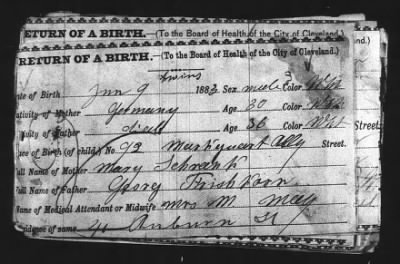 RETURN OF A BIRTH.—(To the Board of Health of the City of Cleveland.)
RETURN OF A BIRTH.—(To the Board of Health of the City of Cleveland.)
twins
Date of Birth Jun 9 188 Sex male Color Wht
Nativity of Mother Germany Age 30 Color Wht
Nativity of Father Age 36 Color Wht Street.
Place of Birth (of child) No 92 Ally Street.
Full Name of Mother Mary Schrank
Full Name of Father Georg
Name of Medical Attendant or Midwife Mrs M May
Residence of same 41 Auburn St